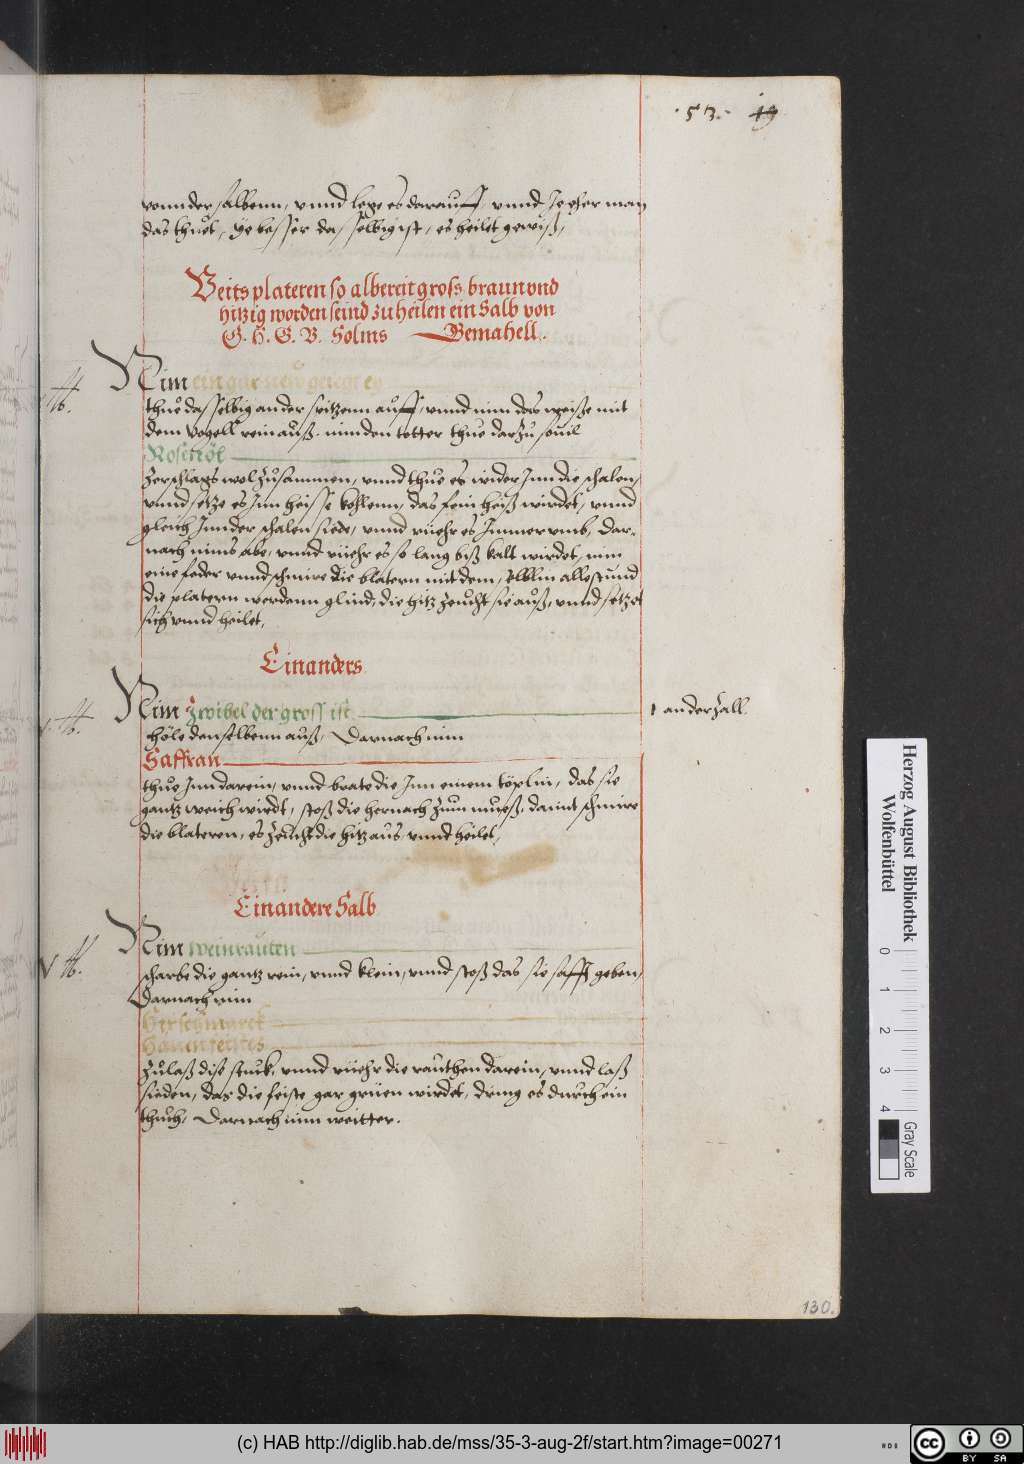 ·53·  19
vonn der salbenn, vnnd lege es darauff, vnnd Je eher man
das thuet, ye besser das selbig ist, es heilet gewiß,
Veits plateren so albereit gross, braun vnd
hitzig worden seind zu heilen ein Salb von
G. H. G. V. Solms Gemahell.
Nim ein gar new gelegt ey
thue dasselbig an der spitzenn auff, vnnd nim das weiße mit
dem Vogell rein auß, nim den totter thue darzu souil
Rosenöl
zerschlags wol zusammen, vnnd thue es wider Jnn die schalen,
vnnd setze es Jnn heisse kohlenn, das fein heiß wirdet, vnnd
gleich Jnn der schalen siede, vnnd rüehr es Jmmer vmb, dar-
nach nims abe, vnnd rüehr es so lang biß kalt wirdet, nim
eine feder vnnd schmire die blatern mit dem, ölblin alle stund
die platern werdenn glind, die hitz zeucht sie auß, vnnd setzet
sich vnnd heilet,
Ein anders.
Nim Zwibel der gross ist
1 an der Zall.
höle denselbenn auß, Darnach nim
Saffran
thue Jnn darein, vnnd brate die Jnn einem töpflin, das sie
gantz weich wirdt, stoß die hernach zum mueß, damit schmire
die blateren, es zeucht die hitz aus, vnnd heilet,
Ein andere Salb
Nim Weinrauten
scharbe die gantz rein, vnnd klein, vnnd stoß das sie safft geben,
Darnach nim
Hirschmarck
Hünerfeistes
Zulaß dise stuck, vnnd rüehr die rauthen darein, vnnd laß
sieden, das die feiste gar grüen wirdet, dring es durch ein
thuch, Darnach nim weitter.
130.
Herzog August Bibliothek
Wolfenbüttel
0 1 2 3 4
Gray Scale
(c) HAB http://diglib.hab.de/mss/35-3-aug-2f/start.htm?image=00271
cc BY SA